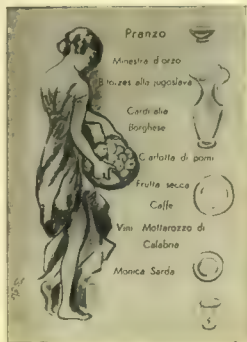 Pranzo
Minestra d'orzo
alla jugoslava
Cardi alla
Borghese
Carlotta di pomi
Frutta secca
Caffe
Vini Mottarozzo di
Calabria
Monica Sarda